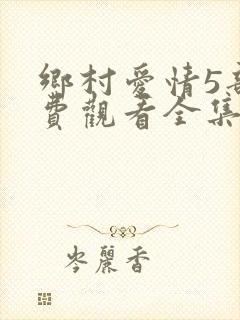 鄉村愛情5
費觀看全集
岑麗香